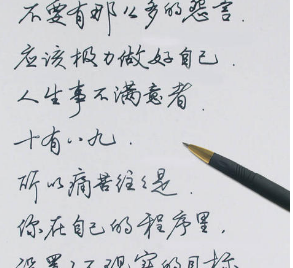 不要有那么多的怨言.
应该极力做好自己.
人生事不满意者.
十有八九.
所以痛苦往往是.
你在自己的程序里.
设置了不现实的目标